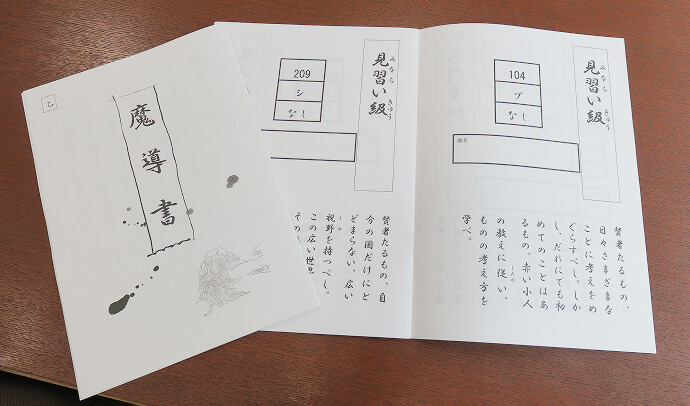 乙
魔導書
見習い級
みなら きゅう
209
シ
なし
賢者たるもの、自
今の国だけにと
どまらない、広い
視野を持つべし。
しや
この広い世界
その
見習い級
みなら きゅう
104
ブ
なし
賢者たるもの、
日々さまざまな
ことに考えをめ
ぐらすべし。しか
し、だれにでも初
めてのことはあ
るもの。赤い小人
の教えに従い、
したが
ものの考え方を
学べ。